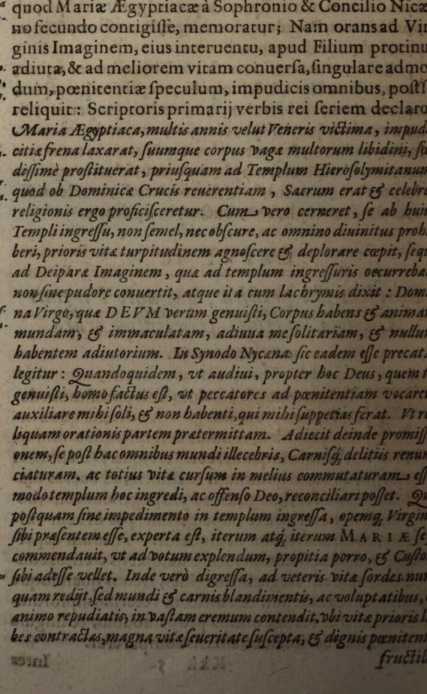 quod Mariæ Ægyptiacæ à Sophronio & Concilio Nicæ
no secundo contigisse, memoratur; Nam orans ad Vir
ginis Imaginem, eius interuentu, apud Filium protinu
adiuta, & ad meliorem vitam conuersa, singulare admo
dum, pœnitentiæ speculum, impudicis omnibus, postf
reliquit: Scriptoris primarij verbis rei seriem declaro
Maria Ægyptiaca, multis annis velut Veneris victima, impudi
citiæ frena laxarat, suumque corpus vagæ multorum libidini, fœ
dissimè prostituerat, priusquam ad Templum Hierosolymitanum
quod ob Dominicæ Crucis reuerentiam, Sacrum erat & celebr
religionis ergo proficisceretur. Cum vero cerneret, se ab huiu
Templi ingressu, non semel, nec obscure, ac omnino diuinitus prohi
beri, prioris vitæ turpitudinem agnoscere & deplorare cœpit, seq
ad Deiparæ Imaginem, quæ ad templum ingressuris occurreba
non sine pudore conuertit, atque ita cum lachrymis dixit: Domi
na Virgo, quæ DEVM verum genuisti, Corpus habens & animam
mundam, & immaculatam, adiuua me solitariam, & nullum
habentem adiutorium. In Synodo Nycænæ sic eadem esse precata
legitur: Quandoquidem, vt audiui, propter hoc Deus, quem t
genuisti, homo factus est, vt peccatores ad pœnitentiam vocaret
auxiliare mihi soli, & non habenti, qui mihi suppetias ferat. Vt re
liquam orationis partem prætermittam. Adiecit deinde promissi
onem, se post hac omnibus mundi illecebris, Carnisq; delitiis renun
ciaturam, ac totius vitæ cursum in melius commutaturam esse
modo templum hoc ingredi, ac offenso Deo, reconciliari posset. Qu
postquam sine impedimento in templum ingressa, opemq; Virgin
sibi præsentem esse, experta est, iterum atq; iterum MARIÆ se
commendauit, vt ad votum explendum, propitia porro, & Custo
sibi adesse vellet. Inde verò digressa, ad veteris vitæ sordes nun
quam redijt, sed mundi & carnis blandimentis, ac voluptatibus,
animo repudiatis, in vastam eremum contendit, vbi vitæ prioris l
bes contractas, magna vitæ seueritate suscepta, & dignis pœnitent
fructib